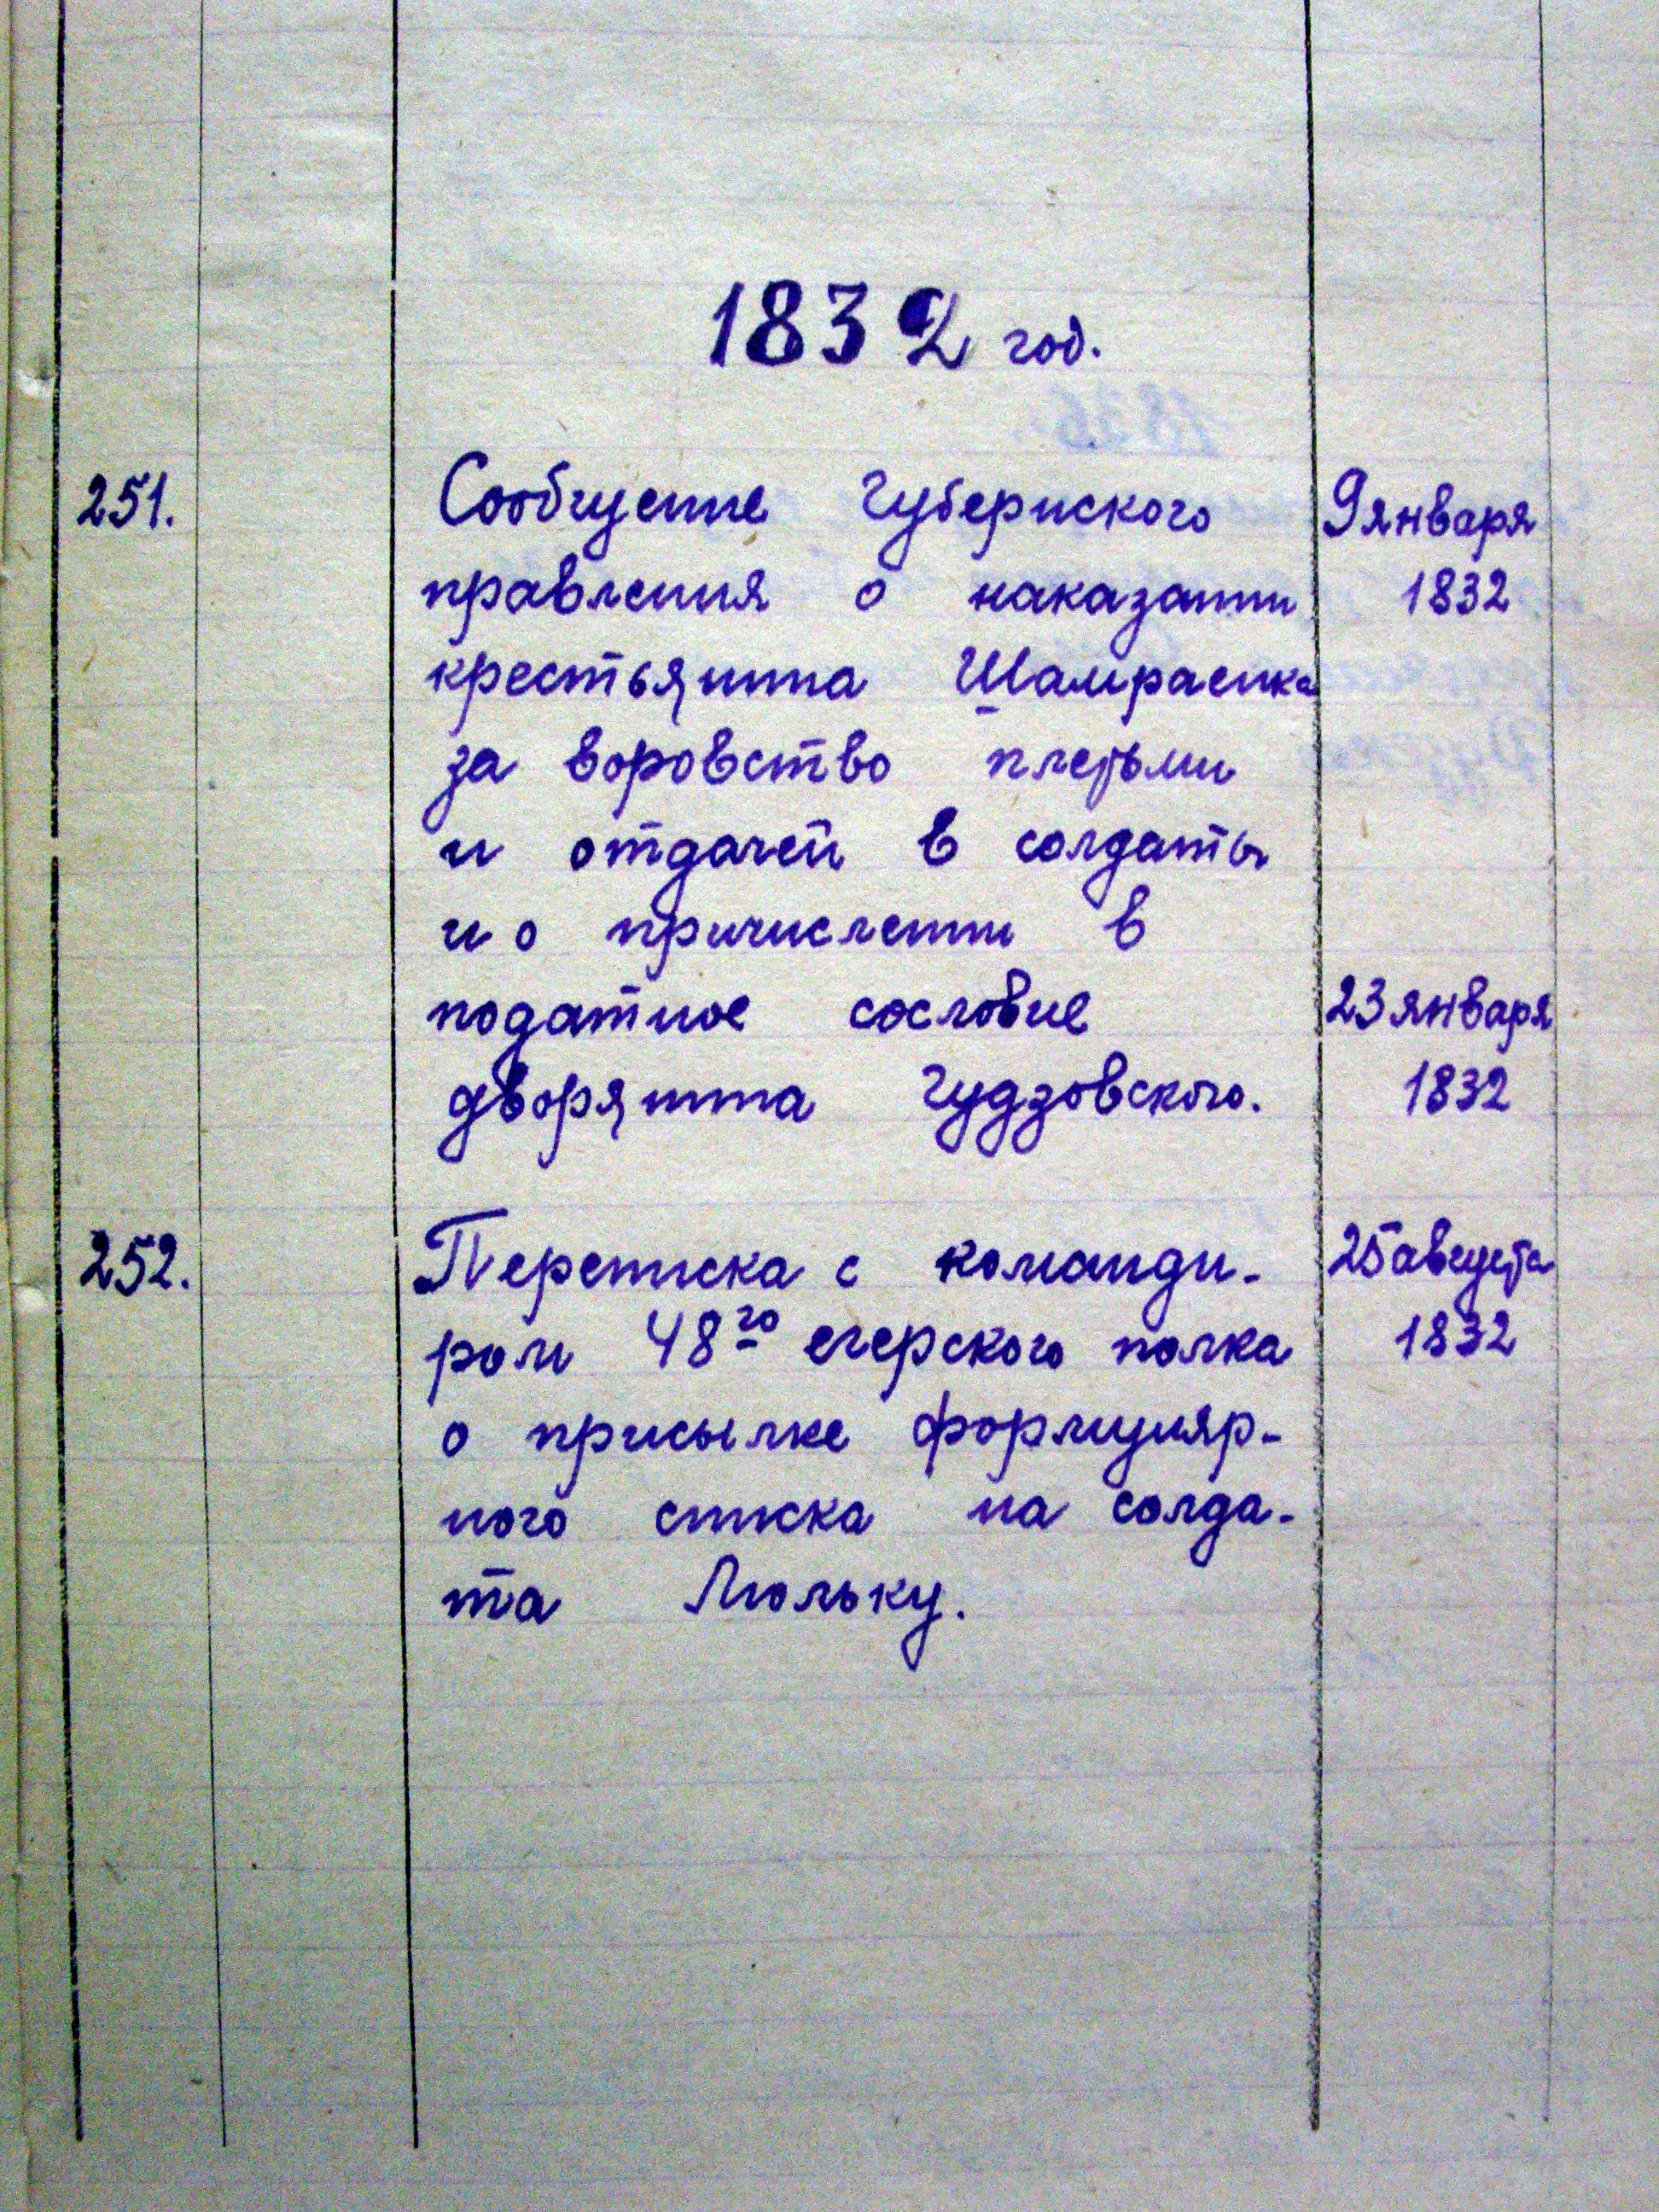 1832 год.
251. Сообщение Губернского 9 января
правления о наказании 1832
крестьянина Шамраенка
за воровство плетьми
и отдачей в солдаты
и о причислении в
податное сословие 23 января
дворянина Гудзовского. 1832
252. Переписка с команди- 25 августа
ром 48го егерского полка 1832
о присылке формуляр-
ного списка на солда-
та Люльку.